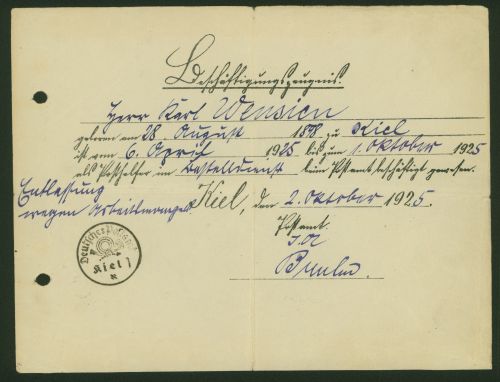 Beschäftigungszeugnis.
Herr Karl Wensien
geboren am 28 August 1898 zu Kiel
ist vom 6. April 1925 bis zum 1. Oktober 1925
als Posthelfer im Bestelldienst beim Postamt beschäftigt gewesen.
Entlassung
wegen Arbeitsmangel.
Kiel, den 2. Oktober 1925.
Postamt.
I A
Deutsches
Kiel 1